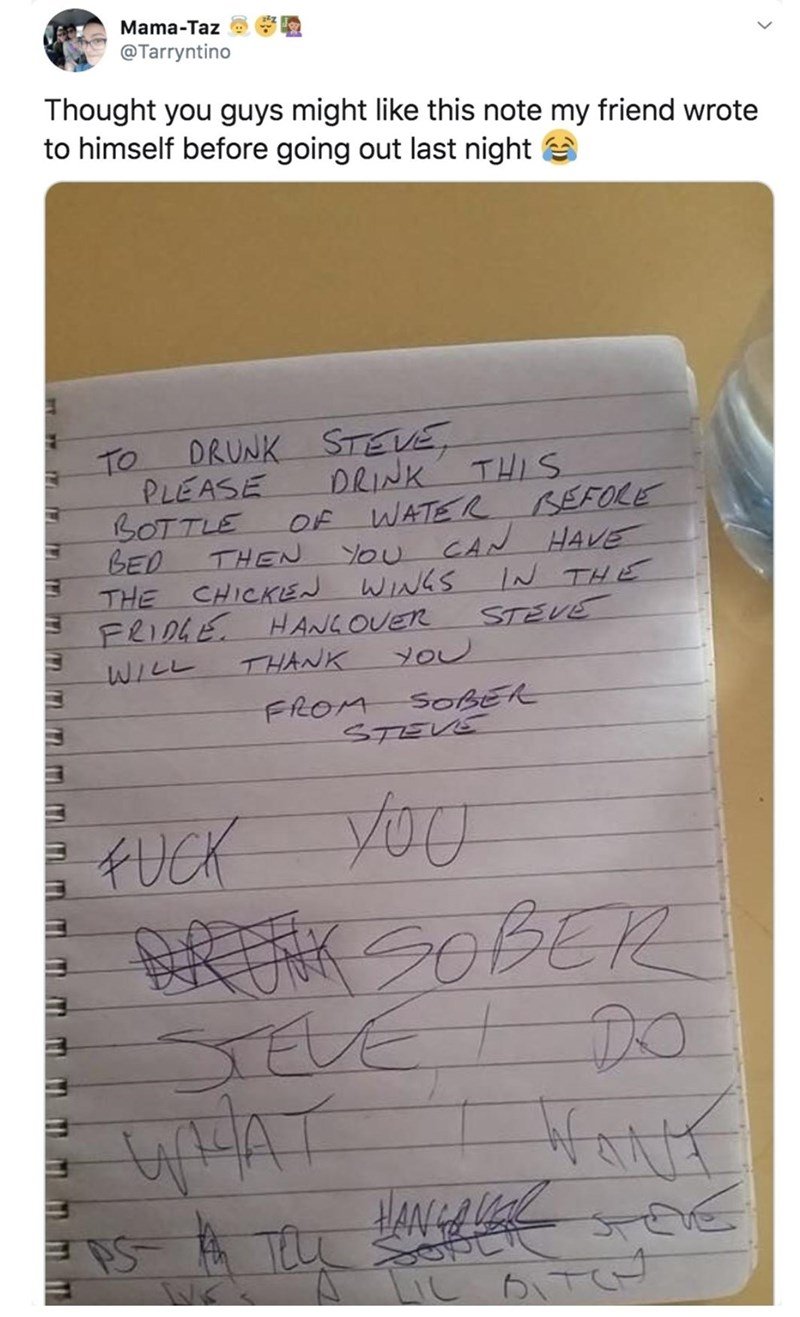 Mama-Taz 👼😴👩‍🏫
@Tarryntino
Thought you guys might like this note my friend wrote
to himself before going out last night 😂
TO DRUNK STEVE,
PLEASE DRINK THIS
BOTTLE OF WATER BEFORE
BED THEN YOU CAN HAVE
THE CHICKEN WINGS IN THE
FRIDGE. HANGOVER STEVE
WILL THANK YOU
FROM SOBER
STEVE
FUCK YOU
DRUNK SOBER
STEVE, I DO
WHAT I WANT
PS- TELL HANGOVER STEVE
SOBER
A LIL BITCH